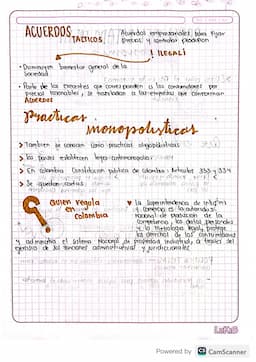 ACUERDOS
TACTICOS
Acuerdos empresariales para fijar
precios y controlar produccion
! ILEGAL!
• Disminuyen bienestar general de la
sociedad
• Parte de los excedentes que corresponden a los consumidores por
precios razonables, se trasladan a las empresas que conforman
Acuerdos
Practicas
monopolisticas
> Tambien se conocen como practicas oligopolisticas
> los paises establecen leyes antimonopolio
> En Colombia Constitución politica de colombia: Articulos 333 y 334
> Se guardan
quien regula
en
colombia
♥ la Superintendencia de industria
y comercio es la autoridad
nacional de proteccion de la
competencia, los datos personales
y la metrologia legal, protege
los derechos de los consumidores
y administra el sistema Nacional de propiedad industrial, a traves del
ejercicio de sus funciones administrativas y jurisdiccionales
Powered by CS CamScanner